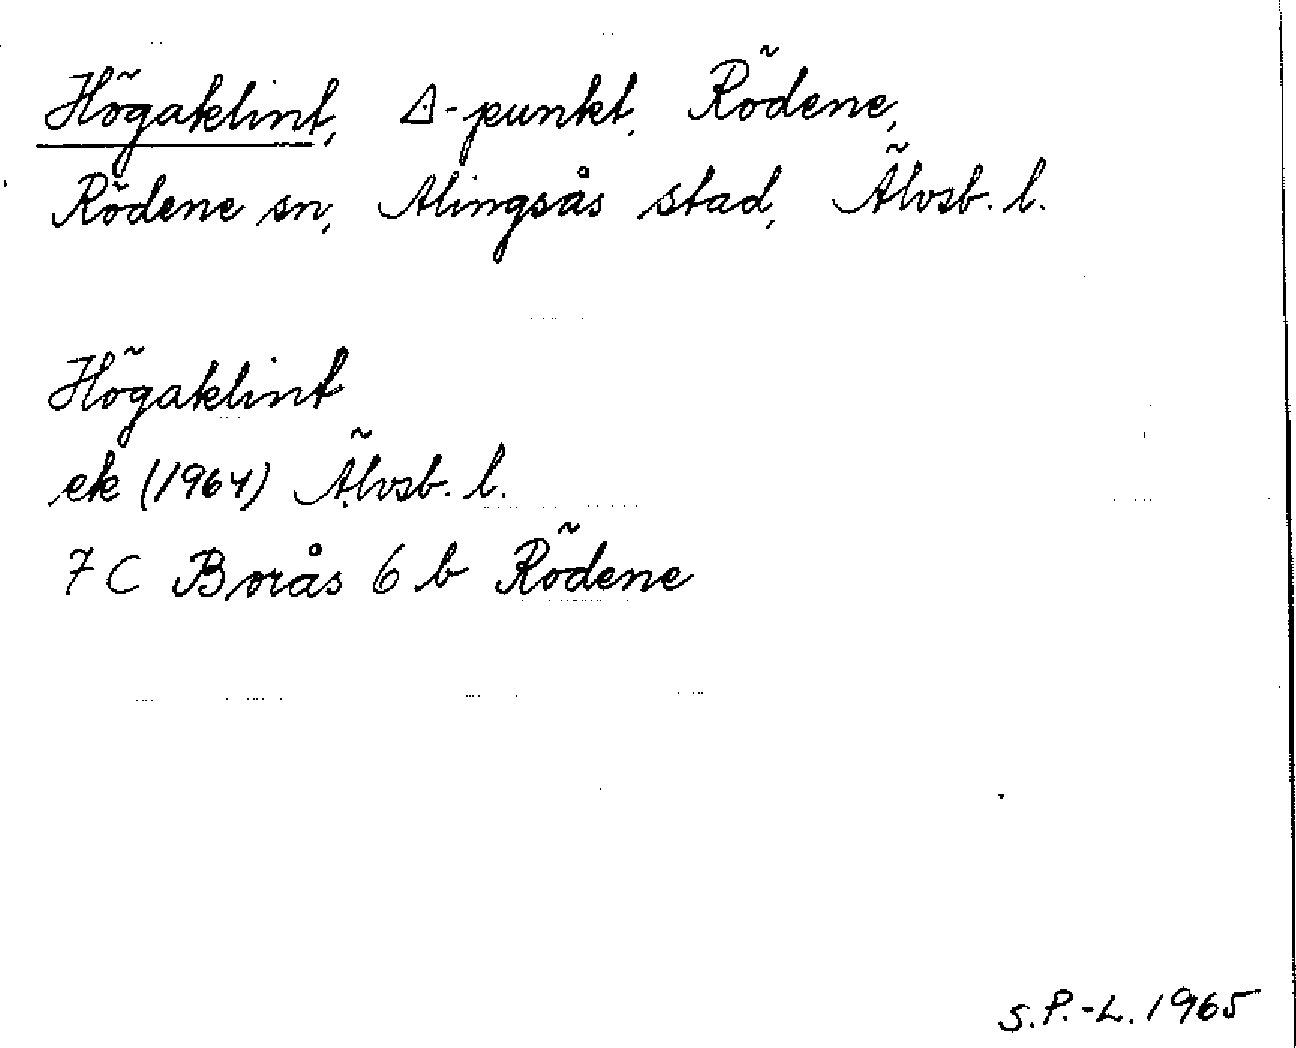 Högaklint, △-punkt, Rödene,
Rödene sn, Alingsås stad, Älvsb. l.
Högaklint
ek (1964) Älvsb. l.
7 C Borås 6 b Rödene
S.P.-L. 1965